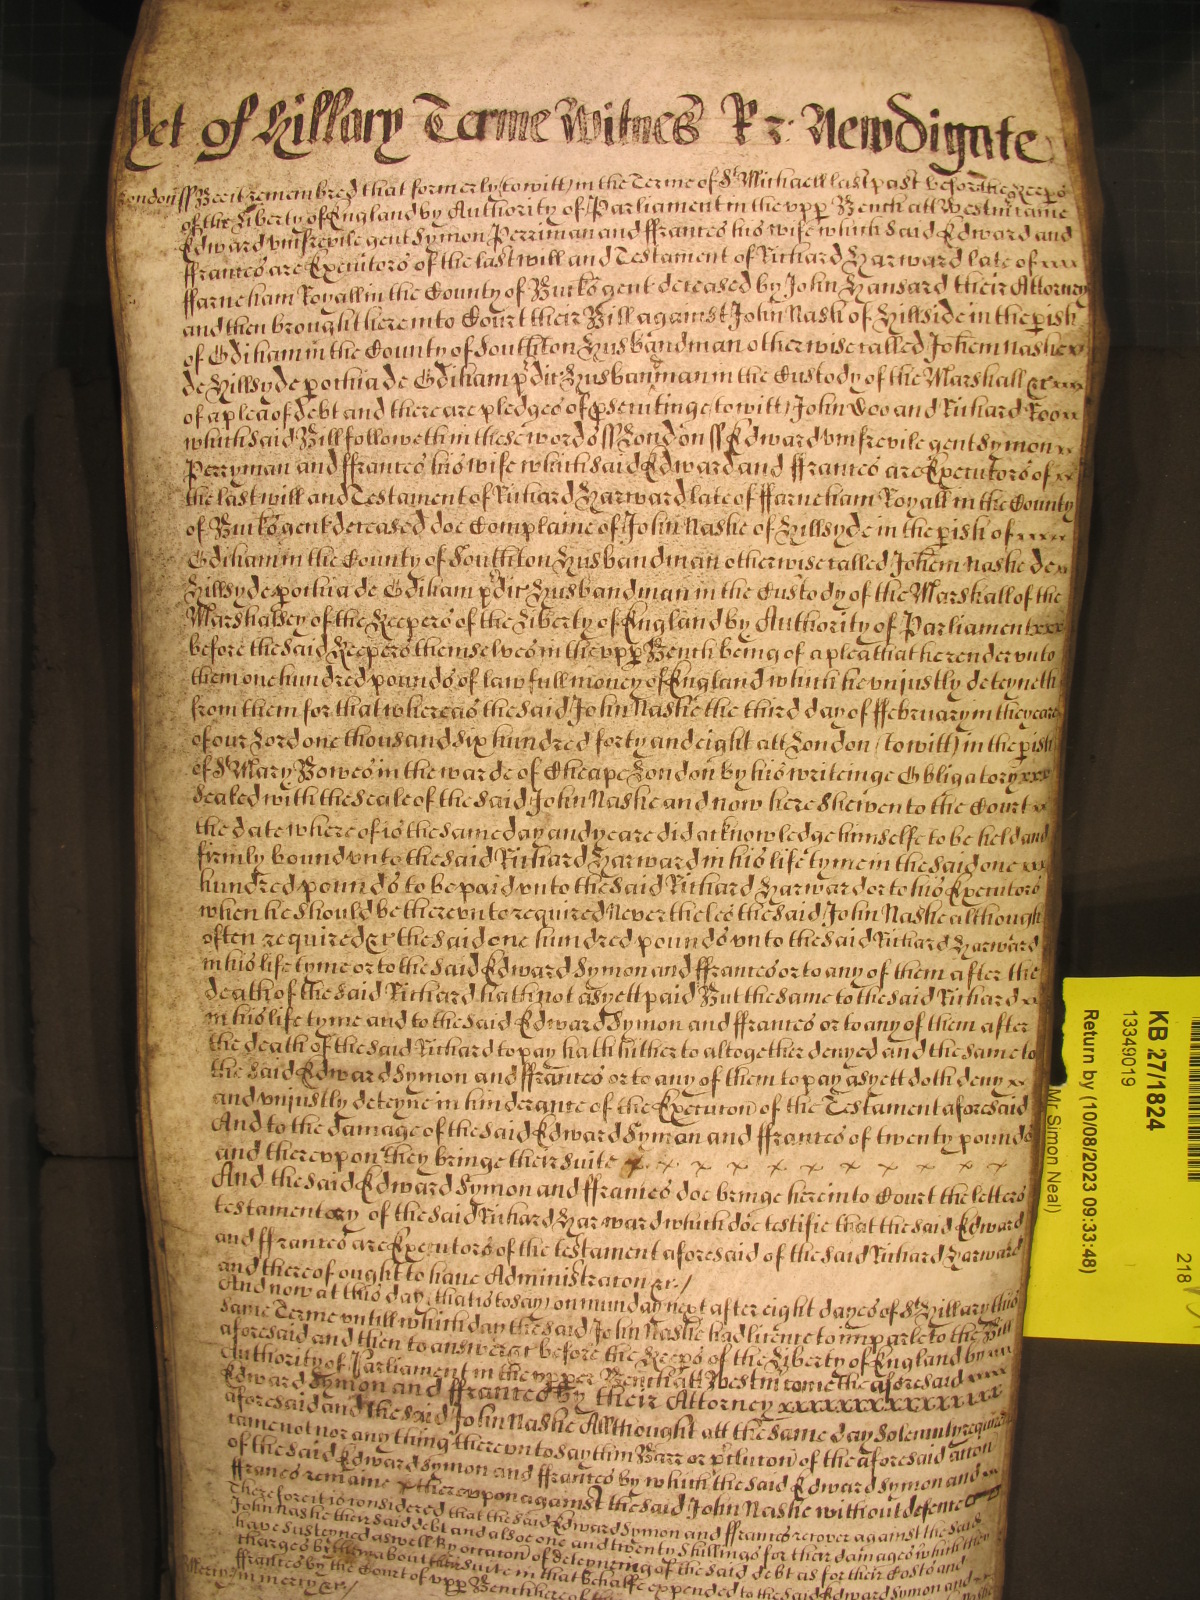 Yet of Hillary Terme Witnes R: Newdigate
London ss Bee it remembred that formerly (to witt) in the Terme of St Michaell last past before the Keeps
of the Liberty of England by Authority of Parliament in the vpp Bench att Westm came
Edward Vmfrevile gent Symon Perriman and ffrances his wife which said Edward and
ffrances are Executors of the last will and Testament of Richard Harward late of
ffarneham Royall in the County of Bucks gent deceased by John Hansard their Attorney
and then brought here into Court their Bill against John Nash of Hillside in the pish
of Odiham in the County of Southton Husbandman otherwise called Johem Nashe
de Hillsyde pochia de Odiham pdic Husbandman in the Custody of the Marshall &c
of a plea of debt and there are pledges of psecutinge (to witt) John Doo and Richard Roo
which said Bill followeth in these words ss London ss Edward Vmfrevile gent Symon
Perryman and ffrances his wife which said Edward and ffrances are Executors of
the last will and Testament of Richard Harward late of ffarneham Royall in the County
of Bucks gent deceased doe Complaine of John Nashe of Hillsyde in the pish of
Odiham in the County of Southton Husbandman otherwise called Johem Nashe de
Hillsyde pochia de Odiham pdic Husbandman in the Custody of the Marshall of the
Marshalsey of the Keepers of the Liberty of England by Authority of Parliament
before the said Keepers themselves in the vpp Bench being of a plea that he render vnto
them one hundred pounds of lawfull money of England which he vniustly deteyneth
from them for that whereas the said John Nashe the third day of ffebruary in the yeare
of our Lord one thousand six hundred forty and eight att London (to witt) in the pish
of St Mary Bowes in the warde of Cheape London by his writeinge Obligatory
sealed with the seale of the said John Nashe and now here shewen to the Court
the date whereof is the same day and yeare did acknowledge himselfe to be held and
firmly bound vnto the said Richard Harward in his life tyme in the said one
hundred pounds to be paid vnto the said Richard Harward or to his Executors
when he should be therevnto required Neverthelesse the said John Nashe although
often required &c the said one hundred pounds vnto the said Richard Harward
in his life tyme or to the said Edward Symon and ffrances or to any of them after the
death of the said Richard hath not as yett paid But the same to the said Richard
in his life tyme and to the said Edward Symon and ffrances or to any of them after
the death of the said Richard to pay hath hitherto altogether denyed and the same to
the said Edward Symon and ffrances or to any of them to pay as yett doth deny
and vniustly deteyne in hinderance of the Execution of the Testament aforesaid
And to the damage of the said Edward Symon and ffrances of twenty pounds
and therevpon they bringe their suite
And the said Edward Symon and ffrances doe bringe here into Court the letters
testamentory of the said Richard Harward which doe testifie that the said Edward
and ffrances are Executors of the testament aforesaid of the said Richard Harward
and thereof ought to haue Administracon &c /
And now at this day (that is to say) on munday next after eight dayes of St Hillary this
same Terme vntill which day the said John Nashe had licence to imparle to the Bill
aforesaid and then to answer &c before the Keeps of the Liberty of England by
Authority of Parliament in the vpper Bench att Westm come the aforesaid
Edward Symon and ffrances by their Attorney
aforesaid and the said John Nashe Allthought att the same day solemnly required
came not nor any thing therevnto say them Barr or pclucon of the aforesaid accon
of the said Edward Symon and ffrances by which the said Edward Symon and
ffrances remaine therevpon against the said John Nashe without defence
Therefore it is considered that the said Edward Symon and ffrances recover against the said
John Nashe their said debt and alsoe one and twenty shillings for their damages which they
have susteyned aswell by occacon of deteyneing of the said debt as for their Costs and
charges by them about their suite in that behalfe expended to the said Edward Symon and
ffrances by the Court of vpp Bench here
Mercy in mercy &c /
KB 27/1824
13349019
Return by (10/08/2023 09:33:48)
Mr Simon Neal)
218